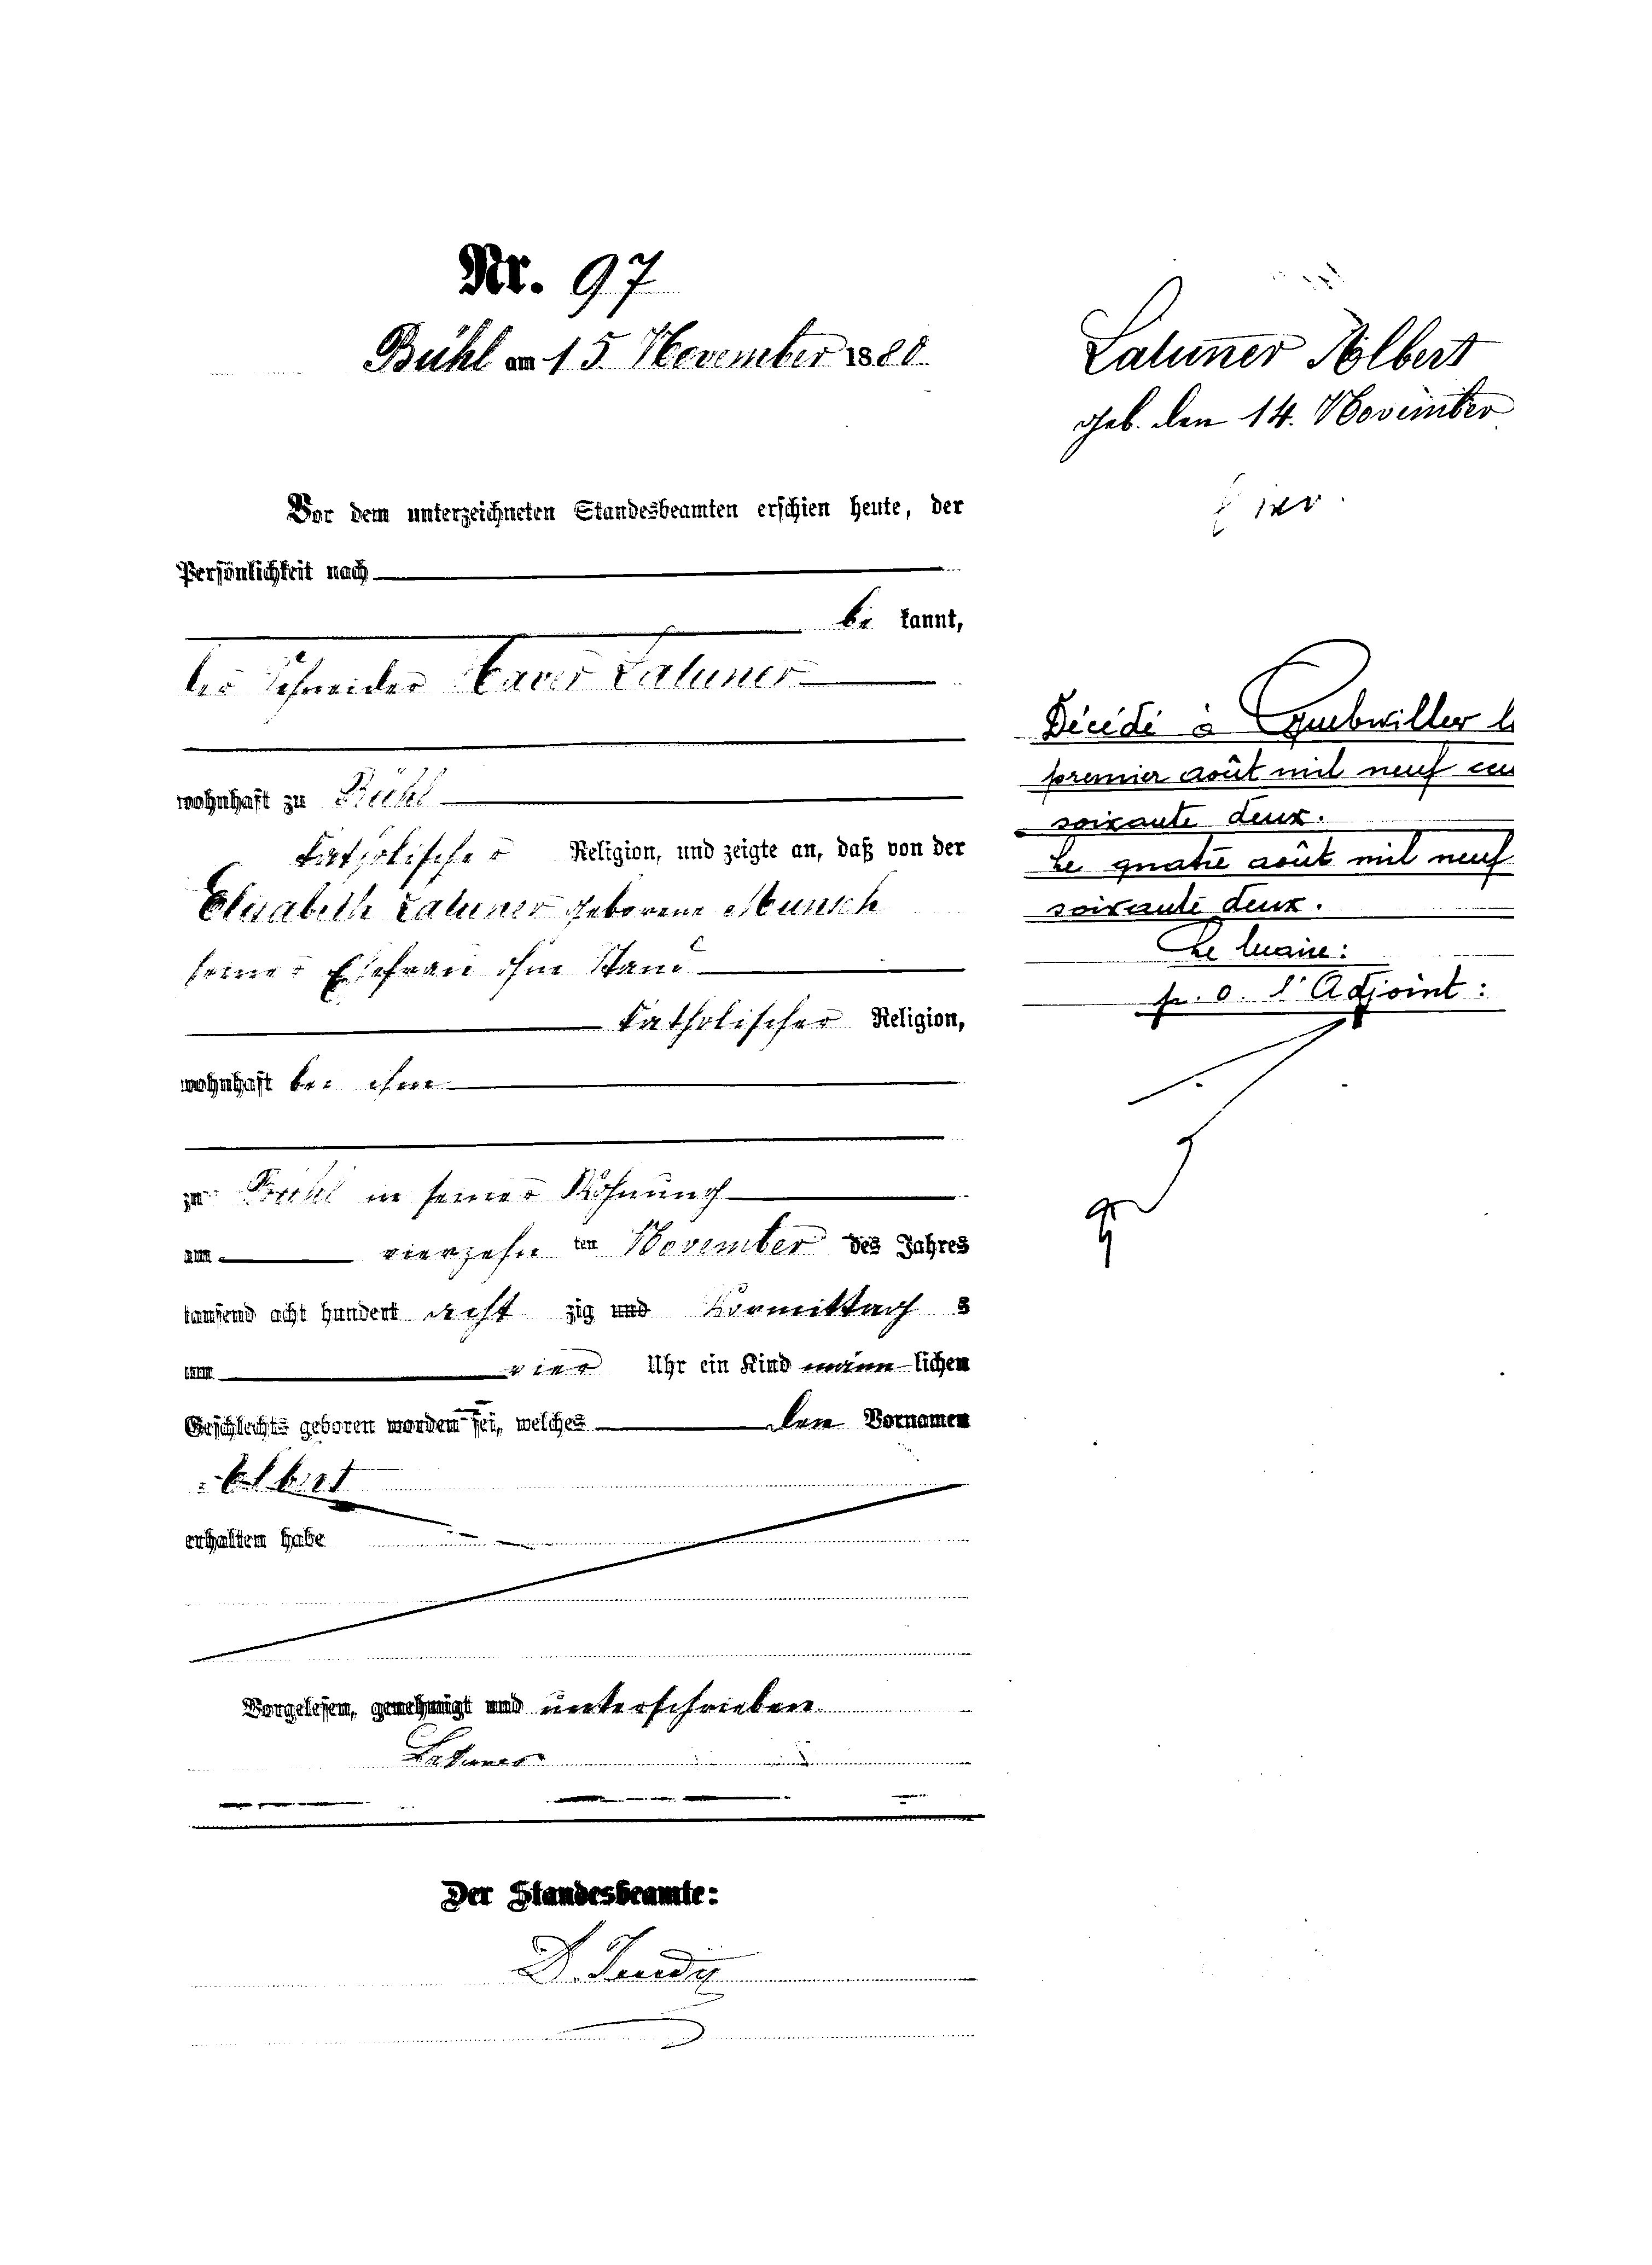 Nr. 97
Bühl am 15. November 1880
Vor dem unterzeichneten Standesbeamten erschien heute, der
Persönlichkeit nach
be kannt,
der Schneider Xaver Latuner
wohnhaft zu Bühl
katholischer Religion, und zeigte an, daß von der
Elisabeth Latuner geborene Munsch
seiner Ehefrau ohne Stand
katholischer Religion,
wohnhaft bei ihm
zu Bühl in seiner Wohnung
am vierzehn ten November des Jahres
tausend acht hundert acht zig und Vormittag s
um vier Uhr ein Kind männ lichen
Geschlechts geboren worden sei, welches den Vornamen
Albert
erhalten habe
Vorgelesen, genehmigt und unterschrieben
Latuner
Der Standesbeamte:
Latuner Albert
geb. den 14. November
Décédé à Guebwiller l
premier août mil neuf cen
soixante deux.
Le quatre août mil neuf
soixante deux.
Le Maire:
p. o. l'Adjoint: